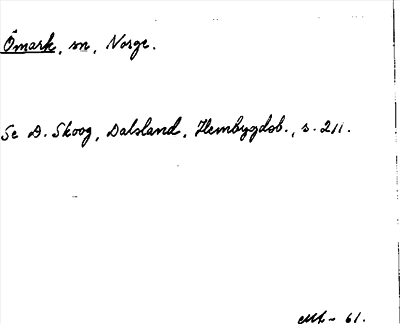 Ömark, sn, Norge.
Se D. Skoog, Dalsland, Hembygdsb., s. 211.
61.